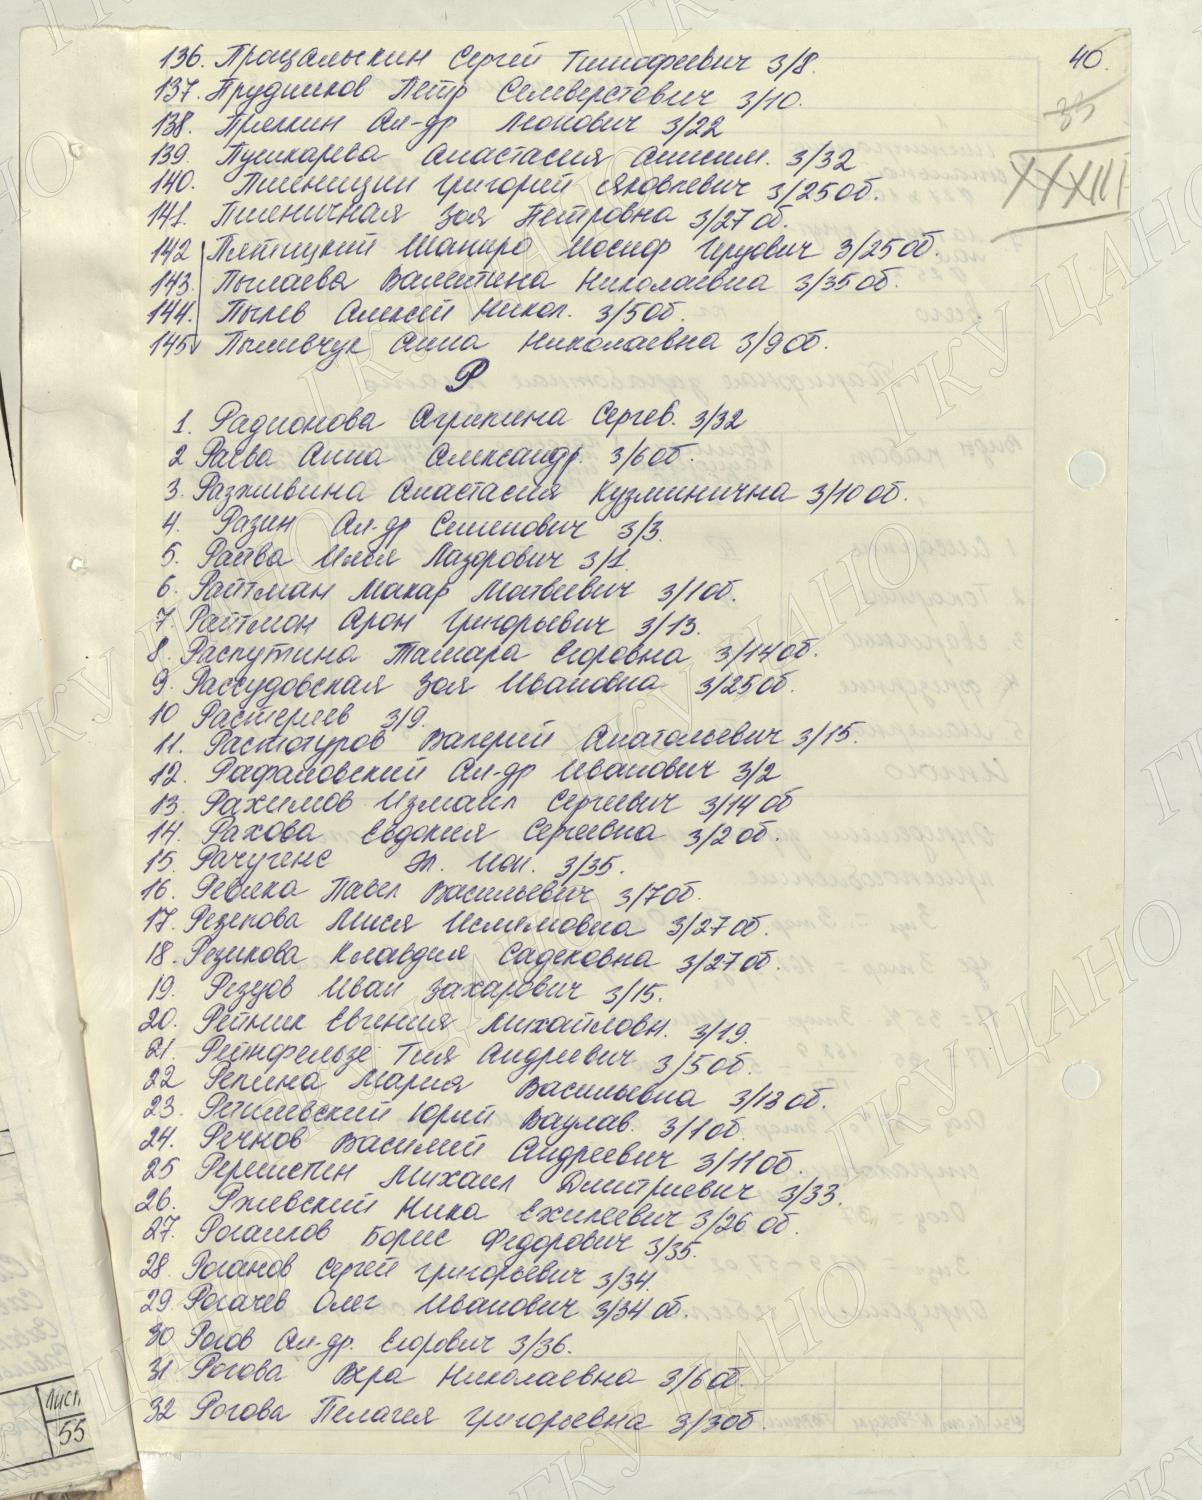 40.
35
XXXIII
136. Працалыкин Сергей Тимофеевич 3/8.
137. Прудников Петр Селеверстович 3/10.
138. Пряхин Ал-др 3/22
139. Пушкарева Анастасия Анисим. 3/32
140. Пшеницин Григорий Яковлевич 3/25 об.
141. Пшеничная Зоя Петровна 3/27 об.
142 Пятицкий Шапиро Иосиф 3/25 об.
143. Пылаева Валентина Николаевна 3/35 об.
144. Пылев Алексей Никол. 3/5 об.
145. Пыливчук Анна Николаевна 3/9 об.
Р
1. Радионова Агрипина Сергев. 3/32
2 Раева Анна Александр. 3/6 об.
3. Разживина Анастасия Кузминична 3/10 об.
4. Разин Ал-др Семенович 3/3.
5. Райва Илья Лазорович 3/1.
6. Райтман Макар Матвеевич 3/1 об.
7. Райтмон Арон Григорьевич 3/13.
8. Распутина Тамара Егоровна 3/14 об.
9. Рассудовская Зоя Ивановна 3/25 об.
10 Растеряев 3/9.
11. Расторгуров Валерий Анатольевич 3/15.
12. Рафаловский Ал-др Иванович 3/2
13. Рахимов Измаил Сергеевич 3/14 об
14. Рахова Евдокия Сергеевна 3/2 об.
15. 3/35.
16. Ревяка Павел Васильевич 3/7 об.
17. Резепова Мися Ислямовна 3/27 об.
18. Резикова Клавдия Садековна 3/27 об.
19. Резцов Иван Захарович 3/15.
20. Рейник Евгения Михайловн. 3/19.
21. Рейнфельзе Тия Андреевич 3/5 об.
22 Репина Мария Васильевна 3/13 об.
23. Юрий Вацлав. 3/1 об.
24. Речнов Василий Андреевич 3/11 об.
25 Михаил Дмитриевич 3/33.
26. Ржевский Ника 3/26 об.
27. Рогаилов Борис Федорович 3/35.
28. Роганов Сергей Григорьевич 3/34.
29. Рогачев Олег Иванович 3/34 об.
30 Рогов Ал-др. Егорович 3/36.
31 Рогова Вера Николаевна 3/6 об.
32 Рогова Пелагея Григорьевна 3/3 об.
Лист
55
ГКУ ЦАНО